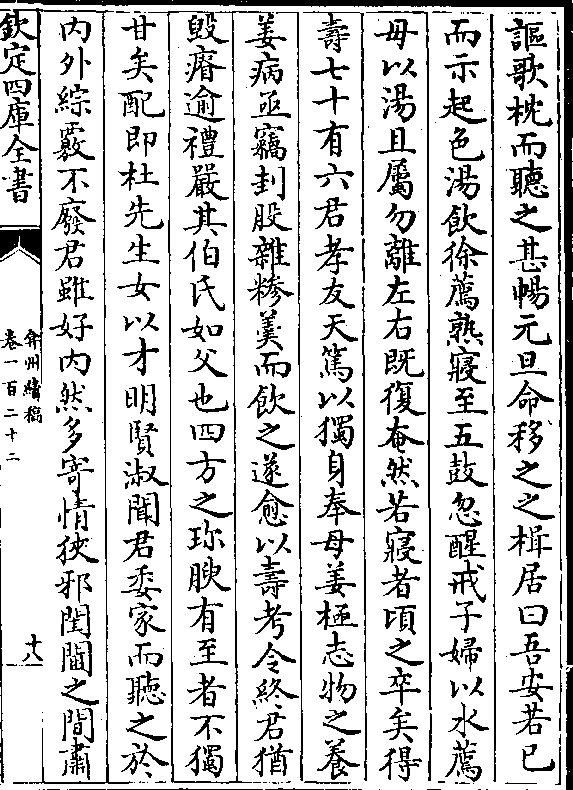 謳歌枕而聽之甚暢元旦命移之之楫居曰吾安若已
而示起色湯飲徐薦熟寢至五鼓忽醒戒子婦以水薦
母以湯且屬勿離左右既復奄然若寢者頃之卒矣得
壽七十有六君孝友天篤以獨身奉母姜極志物之養
姜病亟竊刲股雜糝羮而飲之遂愈以壽考令終君猶
毁瘠逾禮嚴其伯氏如父也四方之珎腴有至者不獨
甘矣配即杜先生女以才明賢淑聞君委家而聽之於
内外綜覈不廢君雖好内然多寄情狹邪閨閫之間肅
欽定四庫全書
弇州續稿
卷一百二十二
十八